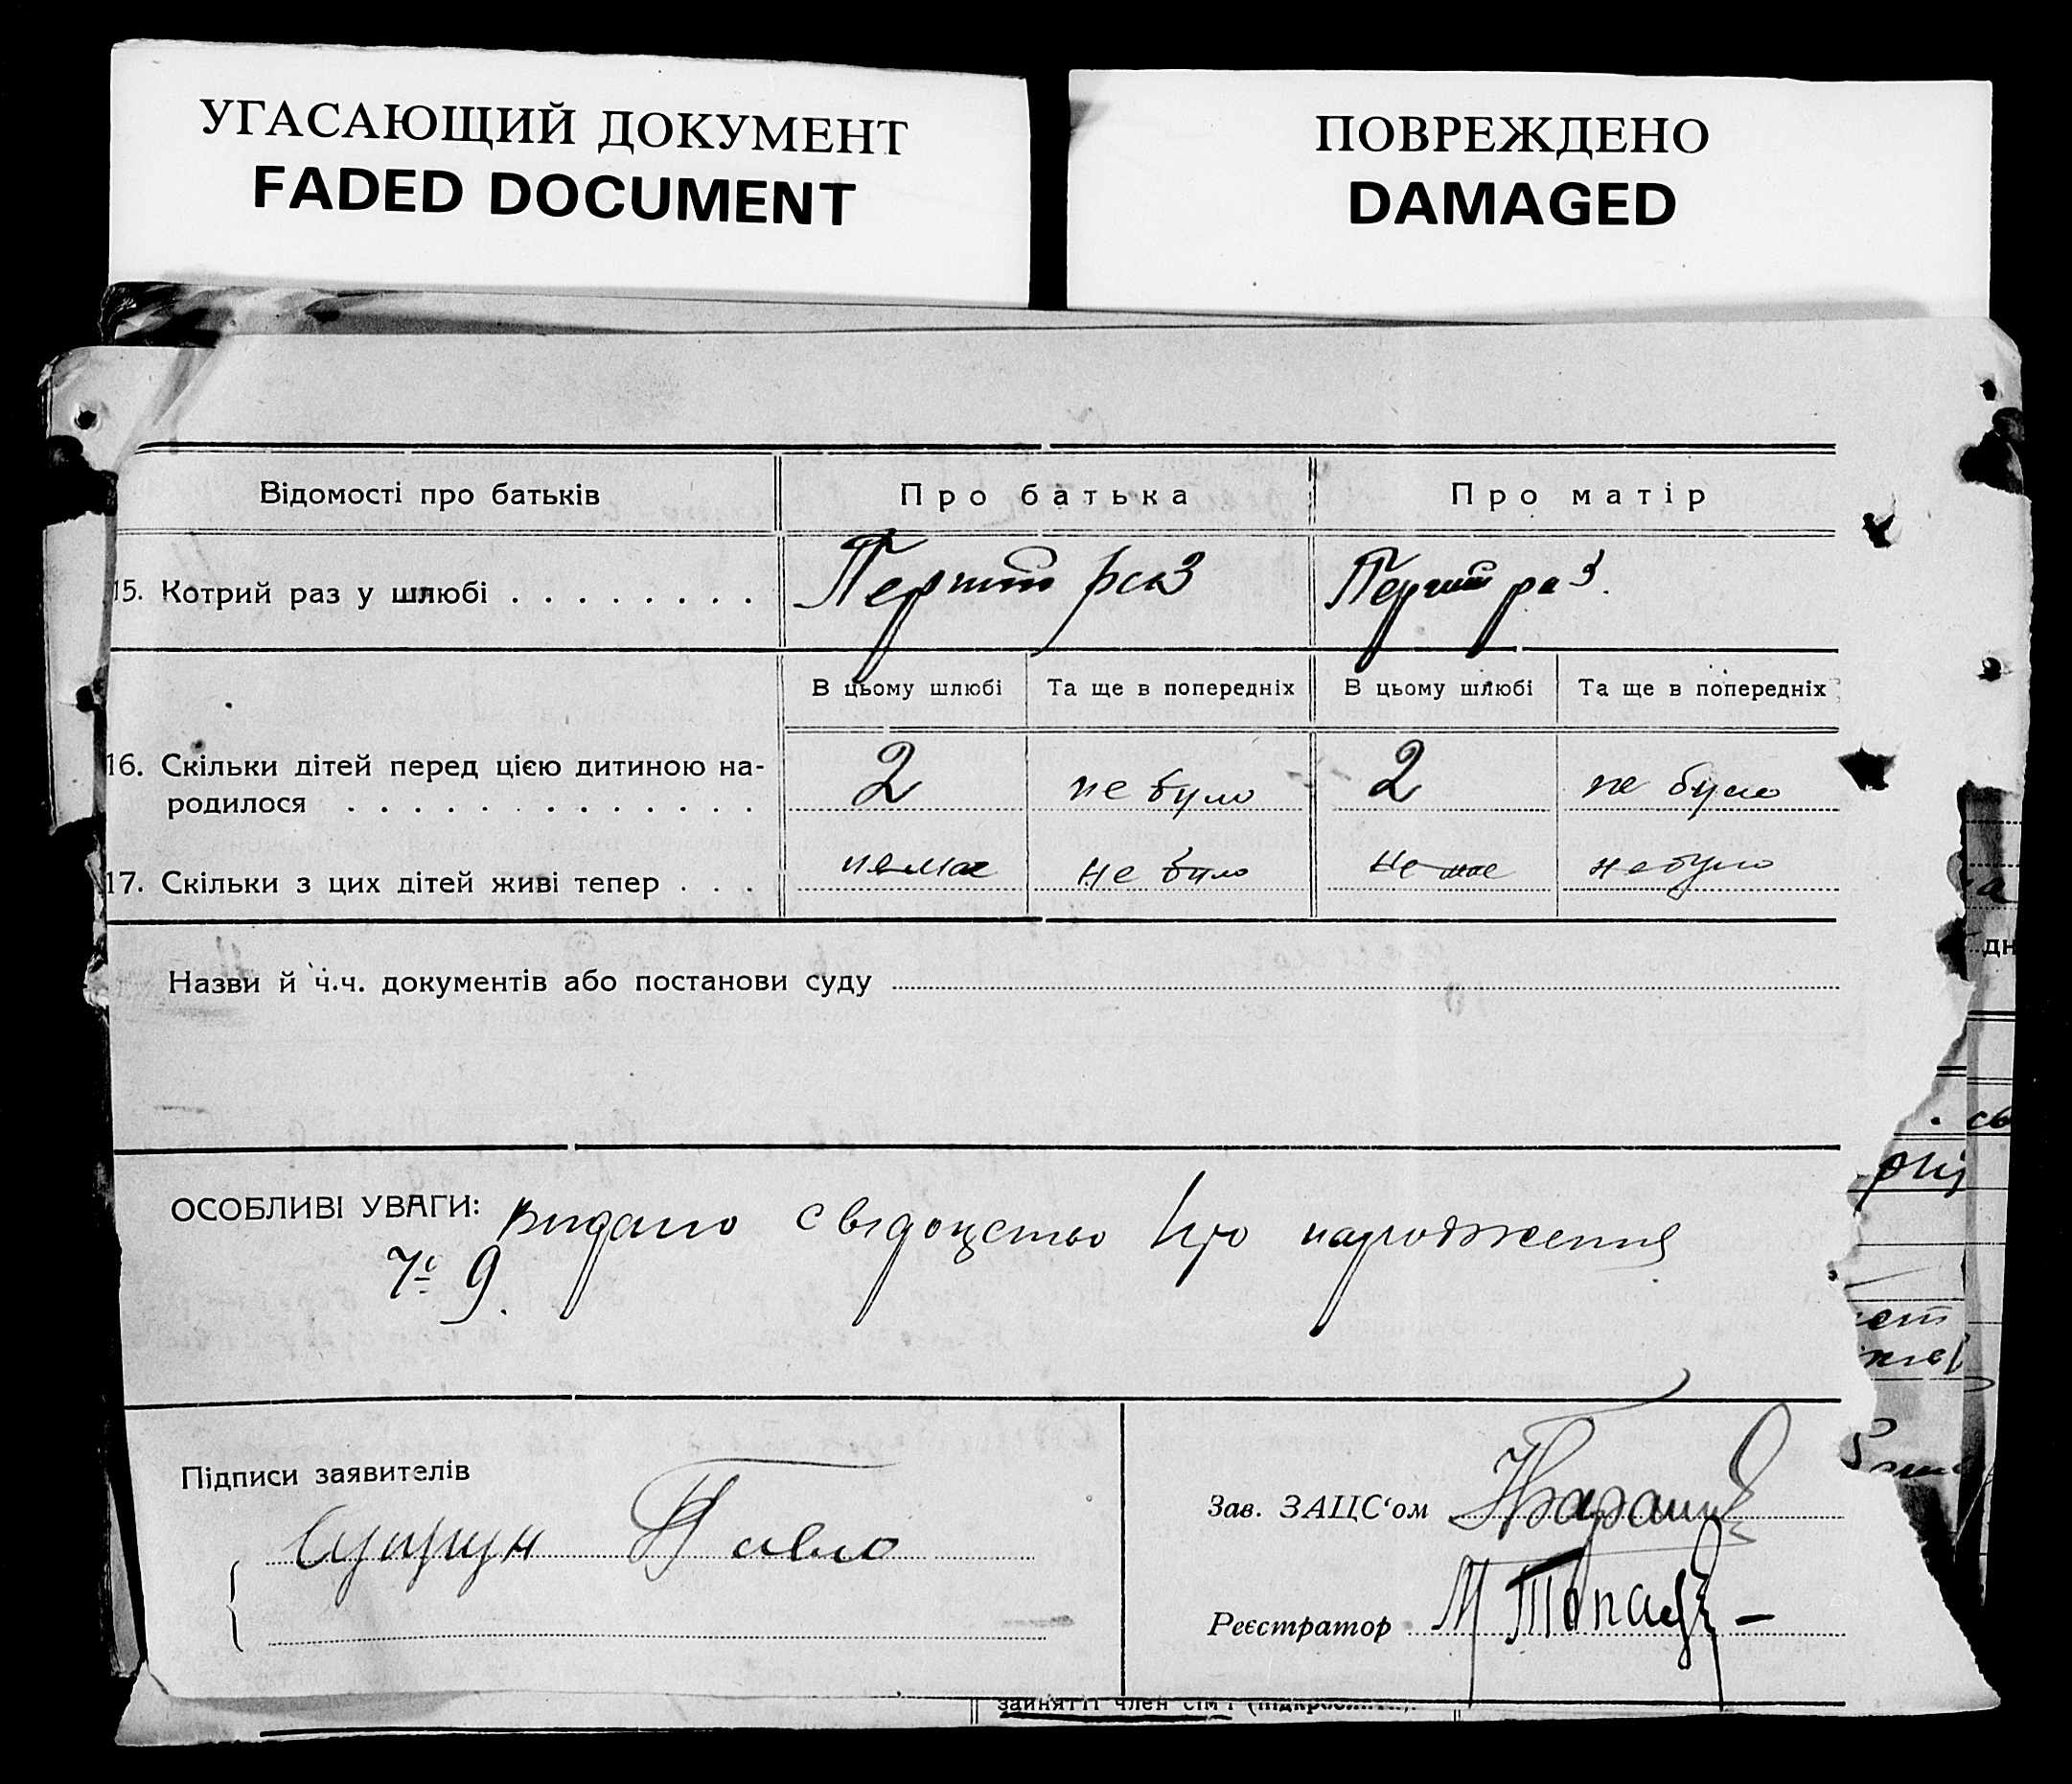 УГАСАЮЩИЙ ДОКУМЕНТ
FADED DOCUMENT
ПОВРЕЖДЕНО
DAMAGED
Відомості про батьків Про батька Про матір
15. Котрий раз у шлюбі . . . . . . . . Перший раз Перший раз.
В цьому шлюбі Та ще в попередніх В цьому шлюбі Та ще в попередніх
16. Скільки дітей перед цією дитиною на-
родилося . . . . . . . . . . . . . 2 не було 2 не було
17. Скільки з цих дітей живі тепер . . . немає не було немає не було
Назви й ч.ч. документів або постанови суду
ОСОБЛИВІ УВАГИ: видано свідоцтво про народження
9.
Підписи заявителів
Супрун Павло
Зав. ЗАЦС‘ом
Реєстратор М
зайнятті член сім'ї